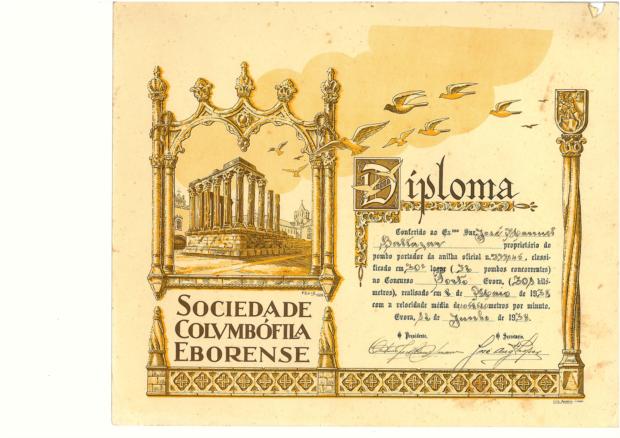 Diploma
Conferido ao Ex.mo Snr. José Manuel
Baltazar proprietário do
pombo portador da anilha oficial n.º classi-
ficado em 30º logar ( pombos concorrentes)
no Concurso Porto Evora, ( kiló-
metros), realisado em 8 de de 1938
com a velocidade média de metros por minuto.
Evora, 12 de Junho de 1938.
O Presidente, O Secretario,
SOCIEDADE
COLVMBÓFILA
EBORENSE